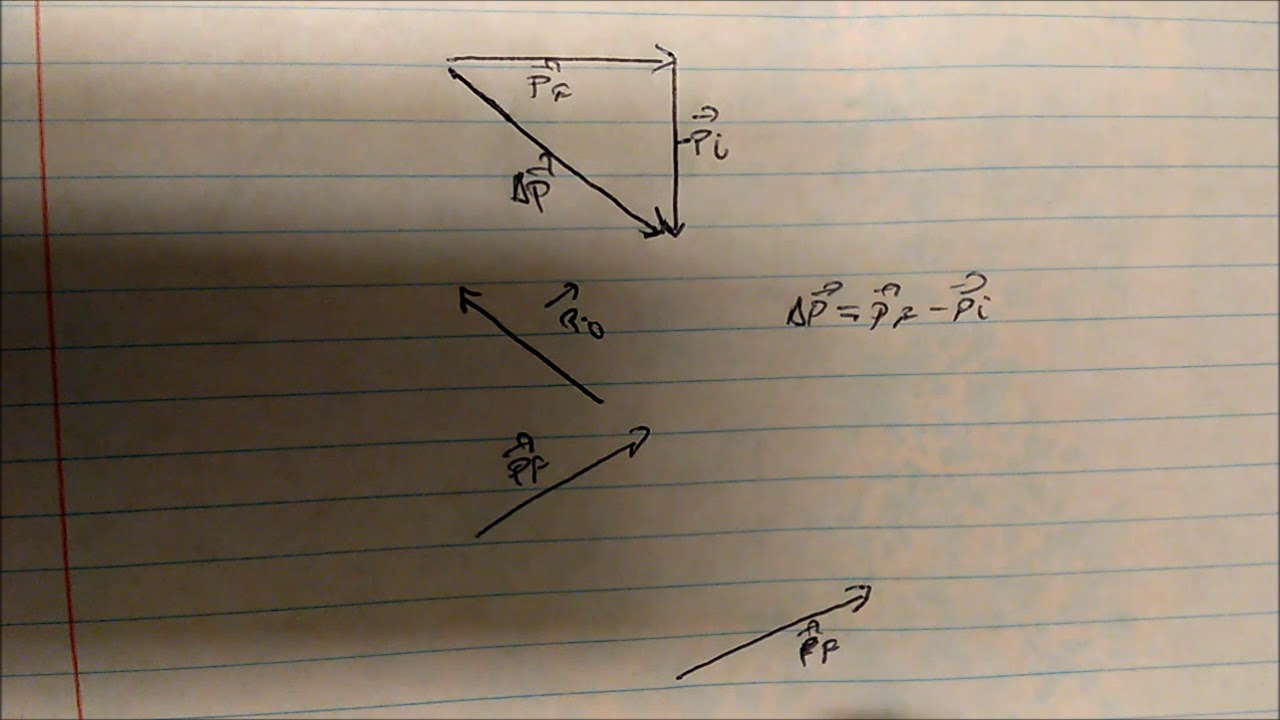 P⃗F
-P⃗i
ΔP⃗
ΔP⃗ = P⃗F - P⃗i
P⃗F
P⃗F